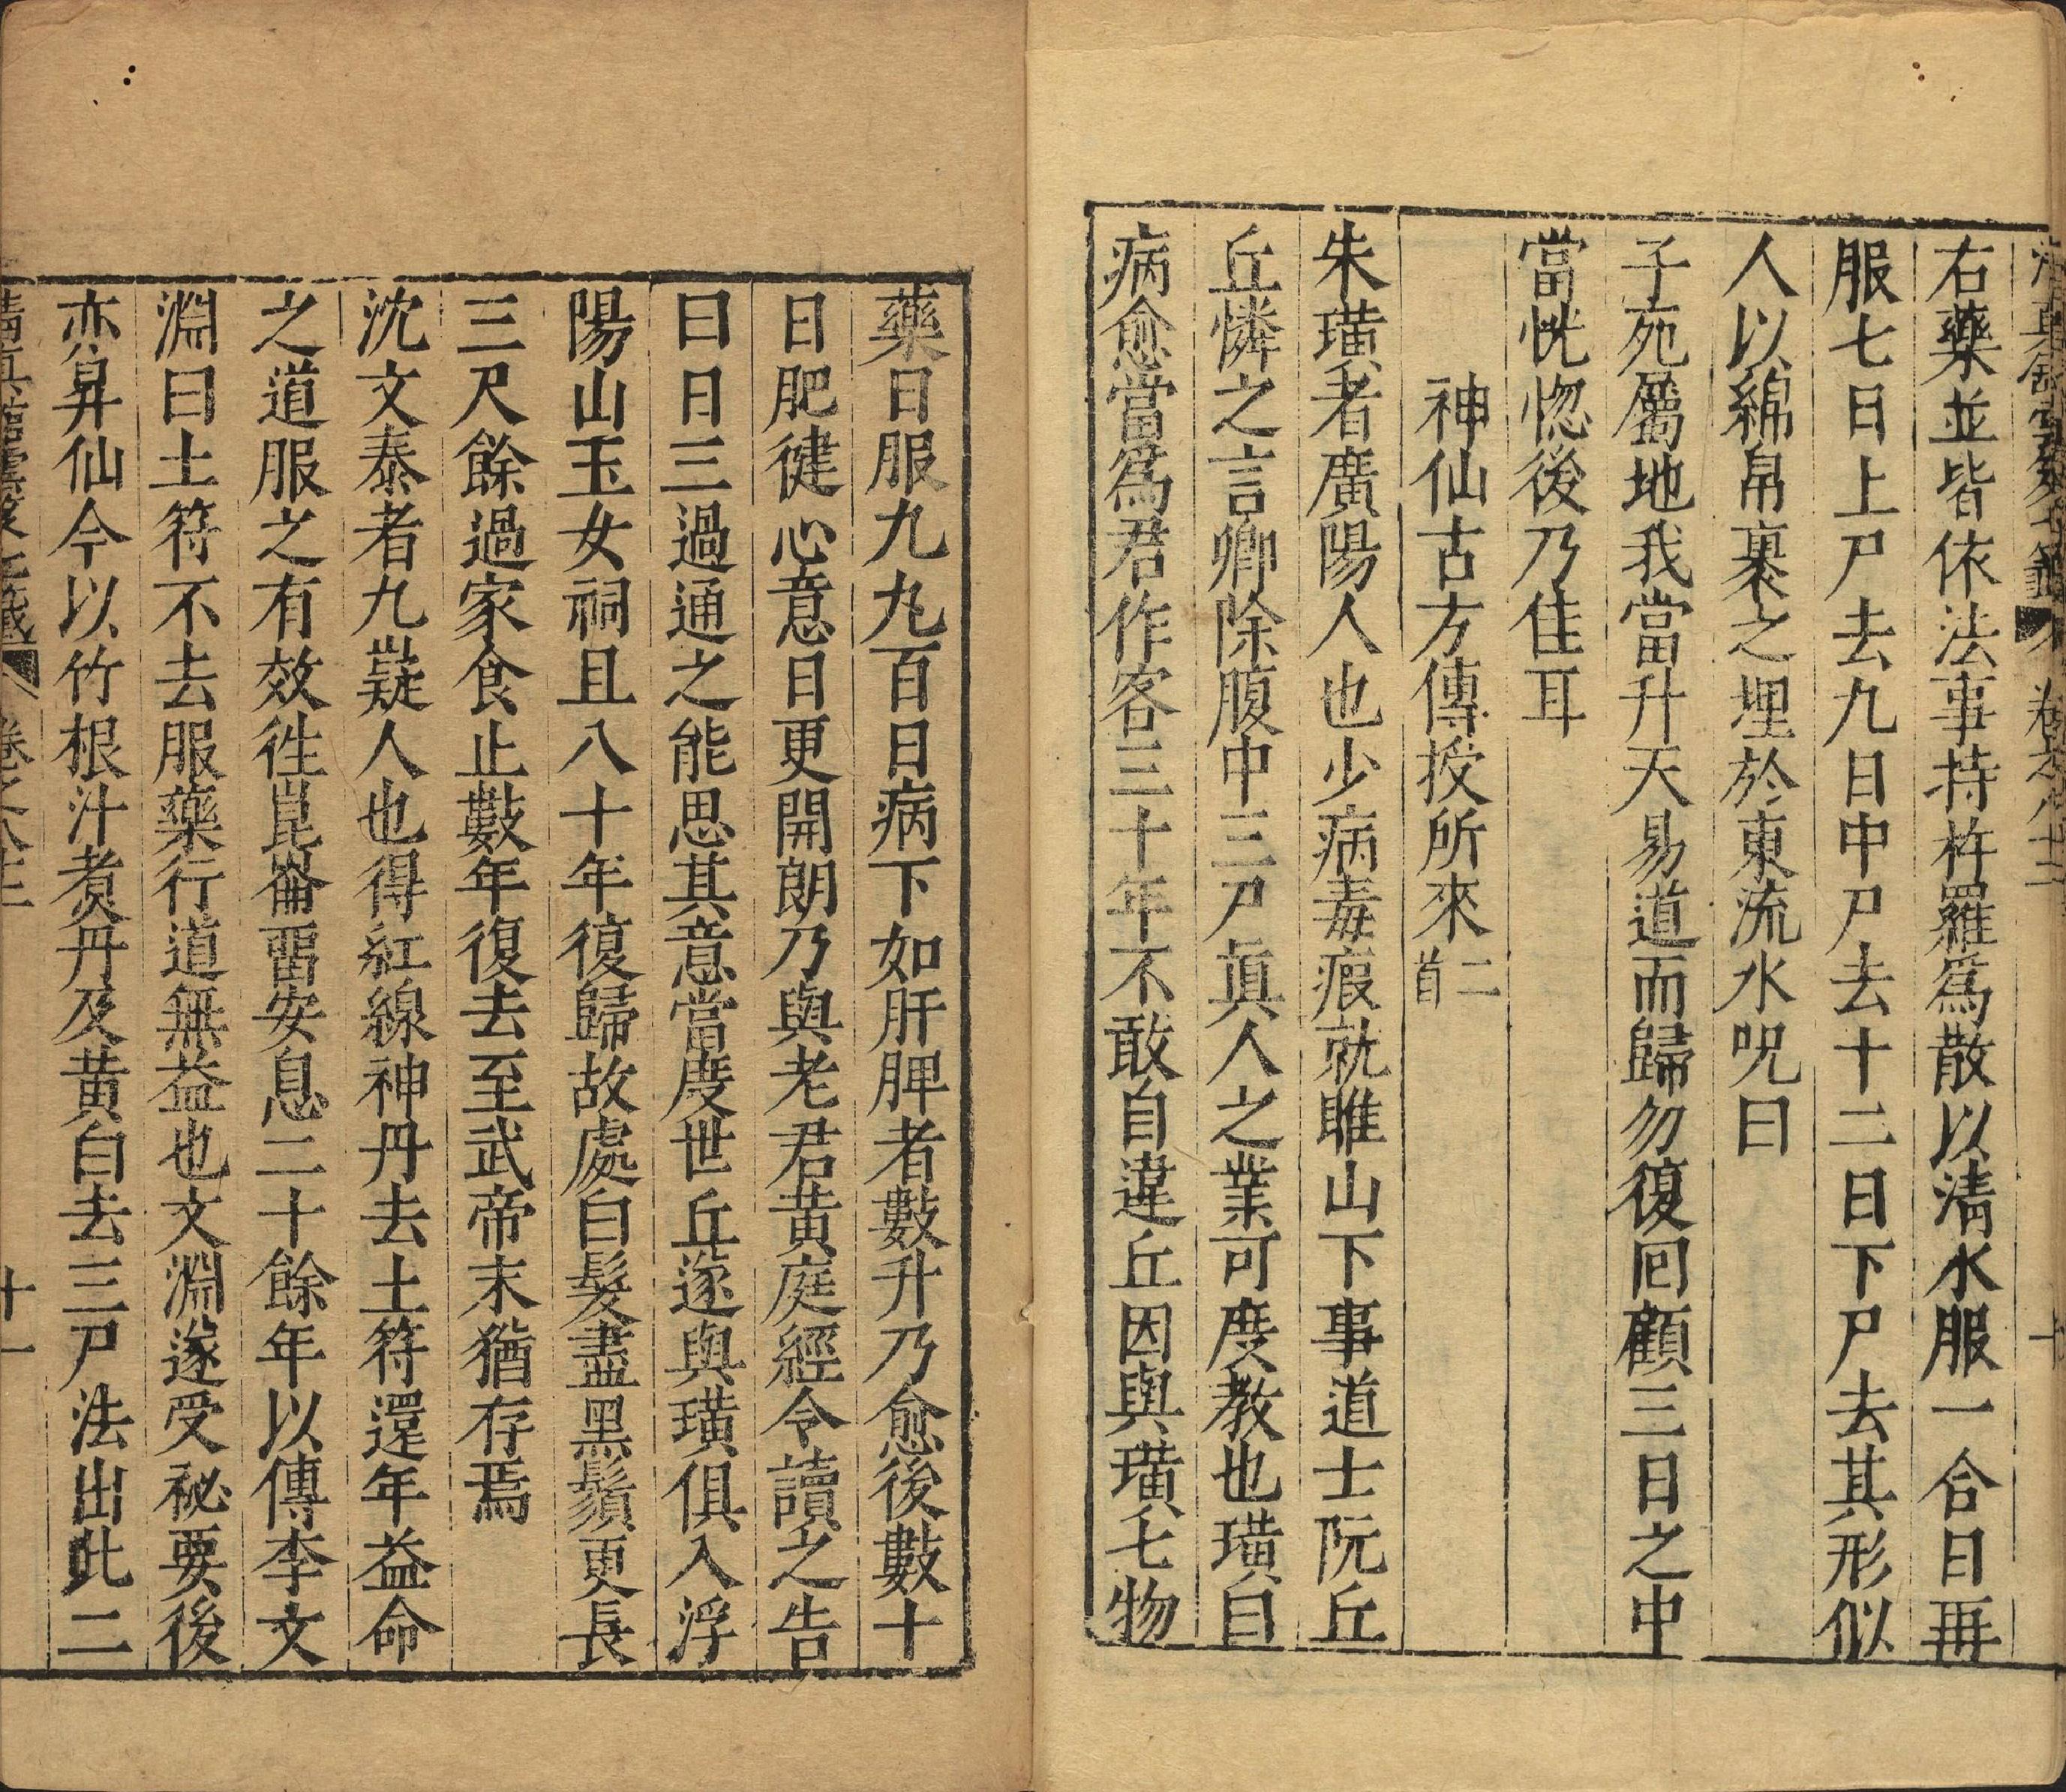 右藥並皆依法事持杵羅爲散以清水服一合日再
服七日上尸去九日中尸去十二日下尸去其形似
人以綿帛裹之埋於東流水呪曰
子苑屬地我當升天易道而歸勿復囘顧三日之中
當恍惚後乃佳耳
神仙古方傳授所來二首
朱璜者廣陽人也少病毒瘕就睢山下事道士阮丘
丘憐之言卿除腹中三尸眞人之業可度教也璜自
病愈當爲君作客三十年不敢自違丘因與璜七物
藥日服九丸百日病下如肝脾者數升乃愈後數十
日肥徤心意日更開朗乃與老君黃庭經令讀之告
曰日三過通之能思其意當度世丘遂與璜俱入浮
陽山玉女祠且八十年復歸故處白髮盡黑鬚更長
三尺餘過家食止數年復去至武帝末猶存焉
沈文泰者九嶷人也得紅線神丹去土符還年益命
之道服之有效徃崑崙畱安息二十餘年以傳李文
淵曰土符不去服藥行道無益也文淵遂受祕要後
亦昇仙今以竹根汁煑丹及黃白去三尸法出此二
卷之八十三
十一